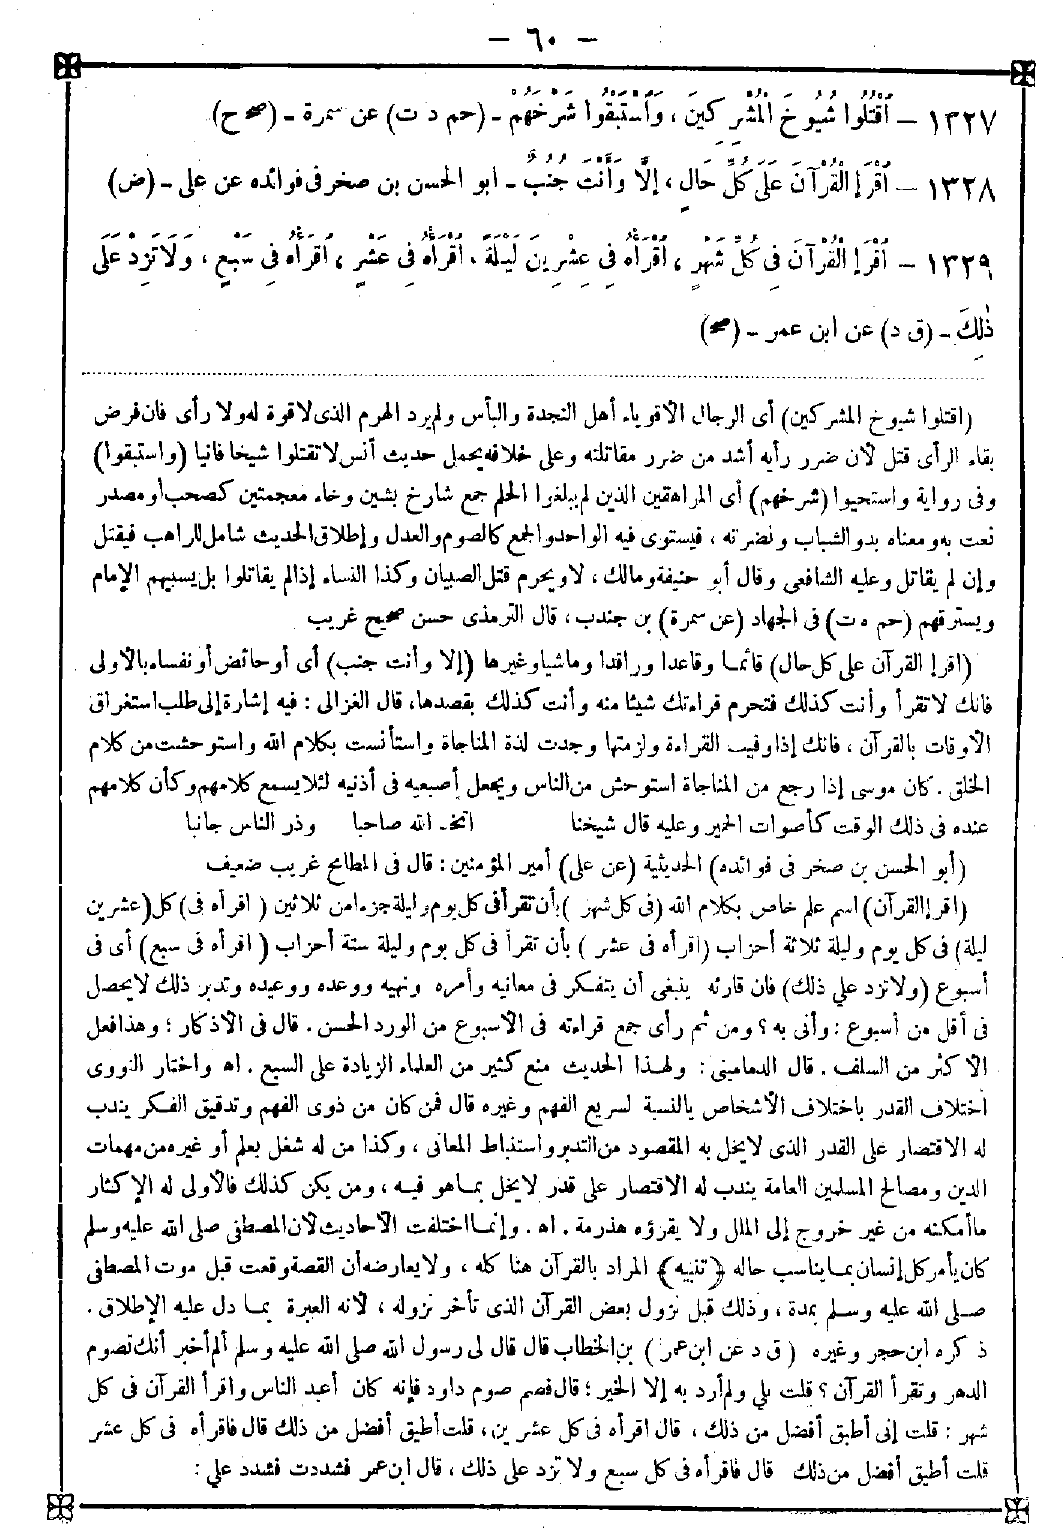 — ٦٠ —
١٣٢٧ — أُقْتُلُوا شُيُوخَ الْمُشْرِكِينَ ، وَاسْتَبْقُوا شَرْخَهُمْ - (حم د ت) عن سمرة - (صح ح)
١٣٢٨ — أَقْرَإِ الْقُرْآنَ عَلَى كُلِّ حَالٍ ، إلَّا وَأَنْتَ جُنُبٌ - ابو الحسن بن صخر فى فوائده عن على - (ض)
١٣٢٩ — أَقْرَإِ الْقُرْآنَ فِى كُلِّ شَهْرٍ ، أَقْرَأْهُ فِى عِشْرِينَ لَيْلَةً ، أَقْرَأْهُ فِى عَشْرٍ ، أَقْرَأْهُ فِى سَبْعٍ ، وَلَا تَزِدْ عَلَى
ذٰلِكَ - (ق د) عن ابن عمر - (صح)
(اقتلوا شيوخ المشركين) أى الرجال الأقوياء أهل النجدة والبأس ولم يرد الهرم الذى لا قوة له ولا رأى فان فرض
بقاء الرأى قتل لأن ضرر رأيه أشد من ضرر مقاتلته وعلى خلافه يحمل حديث أنس لا تقتلوا شيخا فانيا (واستبقوا)
وفى رواية واستحيوا (شرخهم) أى المراهقين الذين لم يبلغوا الحلم جمع شارخ بشين وخاء معجمتين كصحب أو مصدر
نعت به ومعناه بدو الشباب ونضرته ، فيستوى فيه الواحد والجمع كالصوم والعدل وإطلاق الحديث شامل للراهب فيقتل
وإن لم يقاتل وعليه الشافعى وقال أبو حنيفة ومالك ، لا ويحرم قتل الصبيان وكذا النساء إذا لم يقاتلوا بل يسبيهم الإمام
ويسترقهم (حم ه ت) فى الجهاد (عن سمرة) بن جندب ، قال الترمذى حسن صحيح غريب
(اقرإ القرآن على كل حال) قائما وقاعدا وراقدا وماشيا وغيرها (إلا وأنت جنب) أى أو حائض أو نفساء بالأولى
فانك لا تقرأ وأنت كذلك فتحرم قراءتك شيئا منه وأنت كذلك بقصدها، قال الغزالى : فيه إشارة إلى طلب استغراق
الأوقات بالقرآن ، فانك إذا وفيت القراءة ولزمتها وجدت لذة المناجاة واستأنست بكلام الله واستوحشت من كلام
الخلق . كان موسى إذا رجع من المناجاة استوحش من الناس ويجعل أصبعيه فى أذنيه لئلا يسمع كلامهم وكأن كلامهم
عنده فى ذلك الوقت كأصوات الحمير وعليه قال شيخنا اتخذ الله صاحبا وذر الناس جانبا
(أبو الحسن بن صخر فى فوائده) الحديثية (عن على) أمير المؤمنين : قال فى المطامح غريب ضعيف
(اقرإ القرآن) اسم علم خاص بكلام الله (فى كل شهر) بأن تقرأ فى كل يوم وليلة جزءا من ثلاثين (اقرأه فى) كل (عشرين
ليلة) فى كل يوم وليلة ثلاثة أحزاب (اقرأه فى عشر) بأن تقرأ فى كل يوم وليلة ستة أحزاب (اقرأه فى سبع) أى فى
أسبوع (ولا تزد على ذلك) فان قارئه ينبغى أن يتفكر فى معانيه وأمره ونهيه ووعده ووعيده وتدبر ذلك لا يحصل
فى أقل من أسبوع : وأنى به ؟ ومن ثم رأى جمع قراءته فى الأسبوع من الورد الحسن . قال فى الأذكار ؛ وهذا فعل
الأكثر من السلف . قال الدمامينى : ولهذا الحديث منع كثير من العلماء الزيادة على السبع . اه واختار النووى
اختلاف القدر باختلاف الأشخاص بالنسبة لسريع الفهم وغيره قال فمن كان من ذوى الفهم وتدقيق الفكر يندب
له الاقتصار على القدر الذى لا يخل به المقصود من التدبر واستنباط المعانى ، وكذا من له شغل بعلم أو غيره من مهمات
الدين ومصالح المسلمين العامة يندب له الاقتصار على قدر لا يخل بما هو فيه ، ومن يكن كذلك فالأولى له الإكثار
ما أمكنه من غير خروج إلى الملل ولا يقرؤه هذرمة . اه . وإنما اختلفت الأحاديث لأن المصطفى صلى الله عليه وسلم
كان يأمر كل إنسان بما يناسب حاله ﴿تنبيه﴾ المراد بالقرآن هنا كله ، ولا يعارضه أن القصة وقعت قبل موت المصطفى
صلى الله عليه وسلم بمدة ، وذلك قبل نزول بعض القرآن الذى تأخر نزوله ، لأنه العبرة بما دل عليه الإطلاق .
ذكره ابن حجر وغيره (ق د عن ابن عمر) بن الخطاب قال قال لى رسول الله صلى الله عليه وسلم ألم أخبر أنك تصوم
الدهر وتقرأ القرآن ؟ قلت بلى ولم أرد به إلا الخير ؛ قال فصم صوم داود فإنه كان أعبد الناس واقرأ القرآن فى كل
شهر : قلت إنى أطيق أفضل من ذلك ، قال اقرأه فى كل عشرين ، قلت أطيق أفضل من ذلك قال فاقرأه فى كل عشر
قلت أطيق أفضل من ذلك قال فاقرأه فى كل سبع ولا تزد على ذلك ، قال ابن عمر فشددت فشدد على :